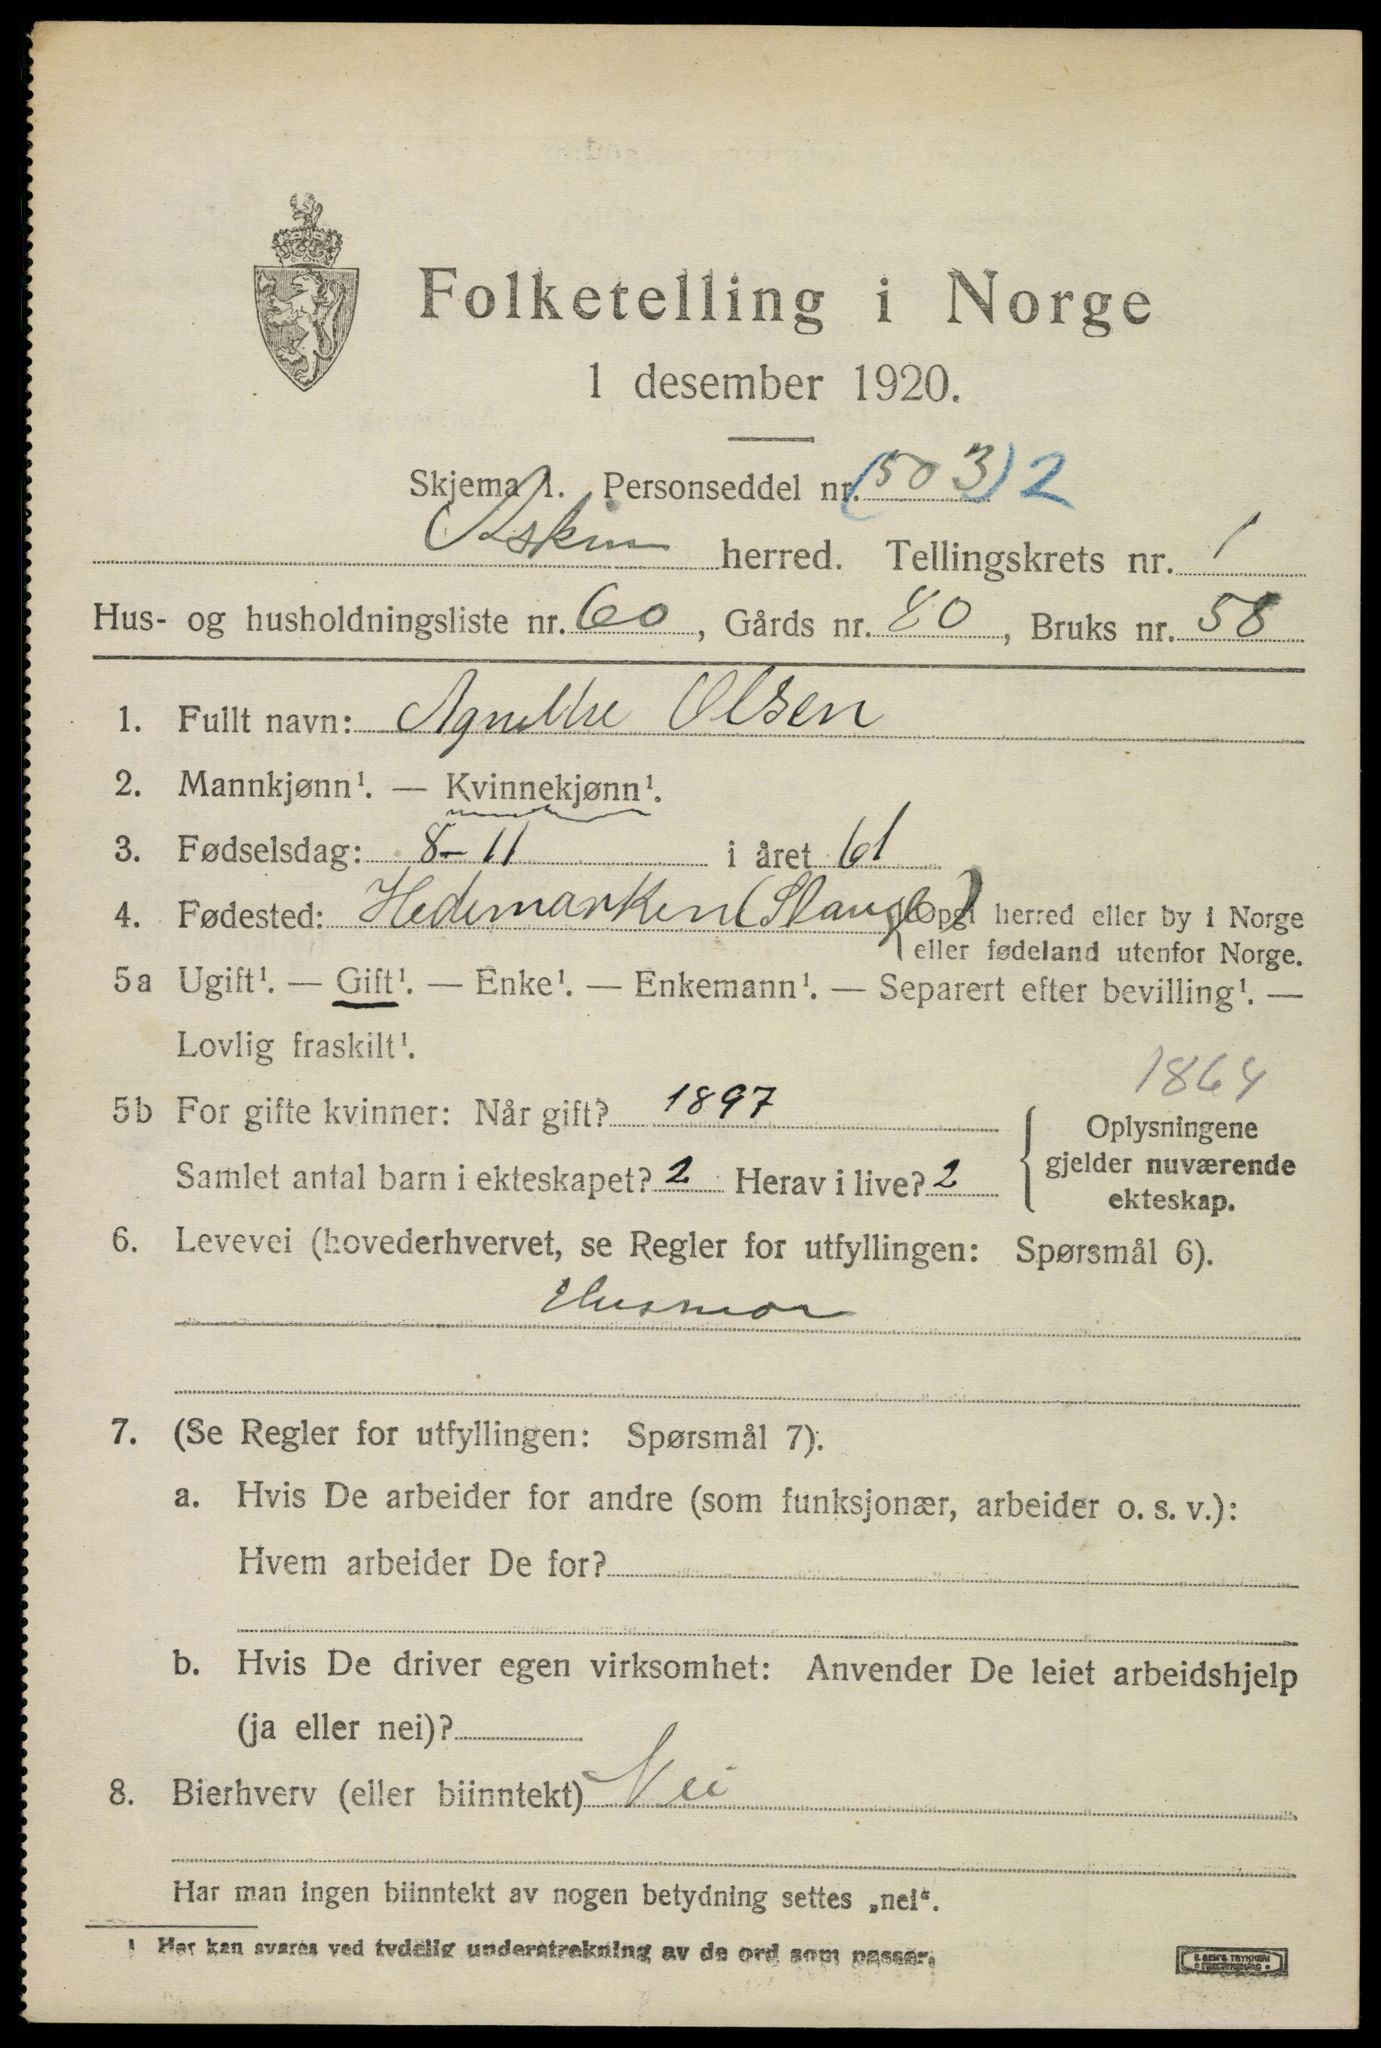 Folketelling i Norge
1 desember 1920.
Skjema 1. Personseddel nr. (503) 2
Askim herred. Tellingskrets nr. 1
Hus- og husholdningsliste nr. 60, Gårds nr. 80, Bruks nr. 58
1. Fullt navn: Agnethe Olsen
2. Mannkjønn¹. — Kvinnekjønn¹.
3. Fødselsdag: 8-11 i året 61
4. Fødested: Hedemarken (Stange) (Opgi herred eller by i Norge
eller fødeland utenfor Norge.
5a Ugift¹. — Gift¹. — Enke¹. — Enkemann¹. — Separert efter bevilling¹. —
Lovlig fraskilt¹.
1864
5b For gifte kvinner: Når gift? 1897
Samlet antal barn i ekteskapet? 2 Herav i live? 2
Oplysningene
gjelder nuværende
ekteskap.
6. Levevei (hovederhvervet, se Regler for utfyllingen: Spørsmål 6).
Husmor
7. (Se Regler for utfyllingen: Spørsmål 7).
a. Hvis De arbeider for andre (som funksjonær, arbeider o. s. v.):
Hvem arbeider De for?
b. Hvis De driver egen virksomhet: Anvender De leiet arbeidshjelp
(ja eller nei)?
8. Bierhverv (eller biinntekt) Nei
Har man ingen biinntekt av nogen betydning settes „nei“.
¹ Her kan svares ved tydelig understrekning av de ord som passer.